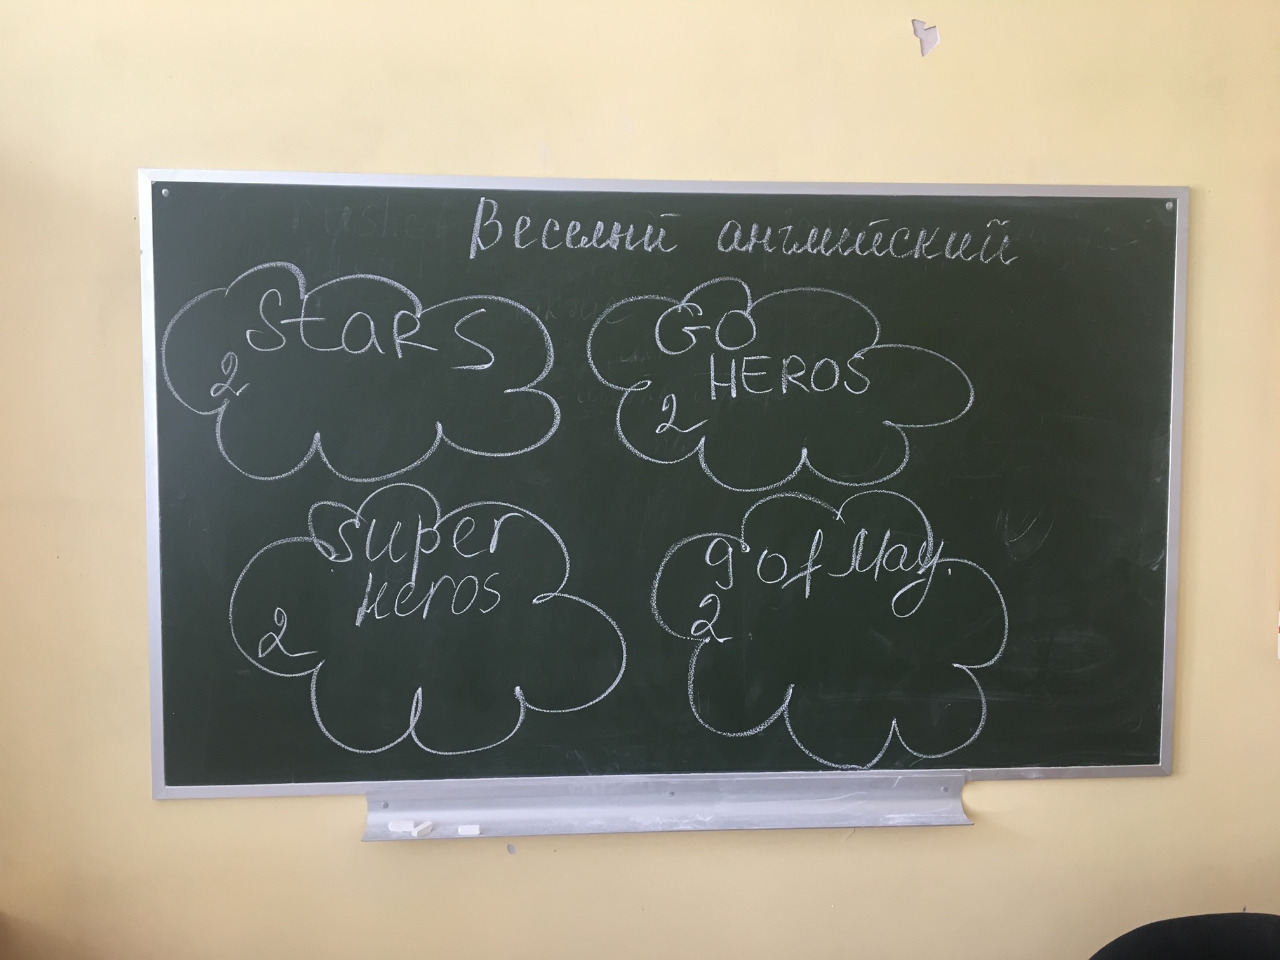 Веселый английский
StaRS
2
GO
HEROS
2
super
heros
2
9 of May.
2